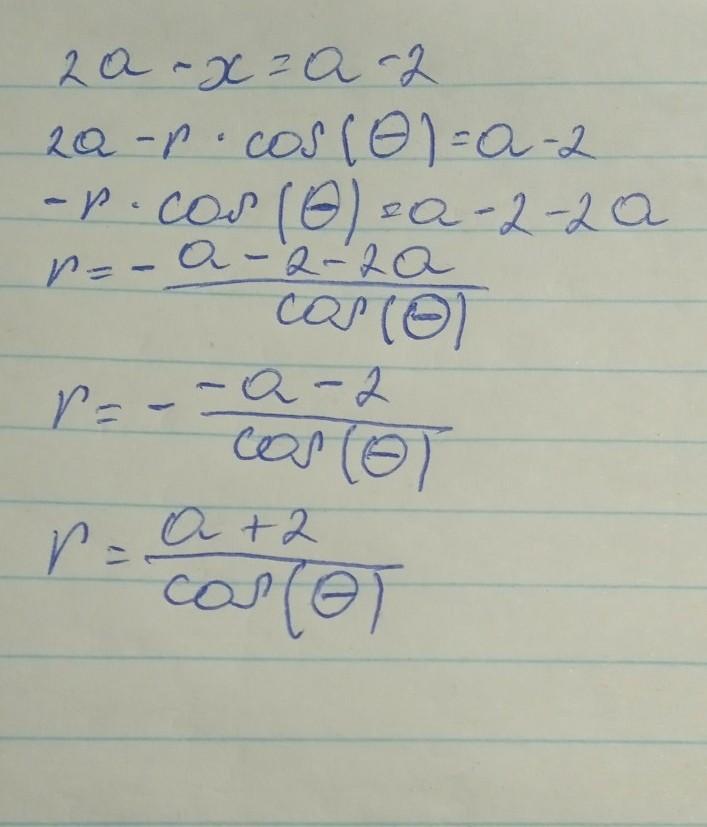 2a - x = a - 2
2a - r · cos(θ) = a - 2
-r · cos(θ) = a - 2 - 2a
r = - \frac{a - 2 - 2a}{cos(θ)}
r = - \frac{-a - 2}{cos(θ)}
r = \frac{a + 2}{cos(θ)}